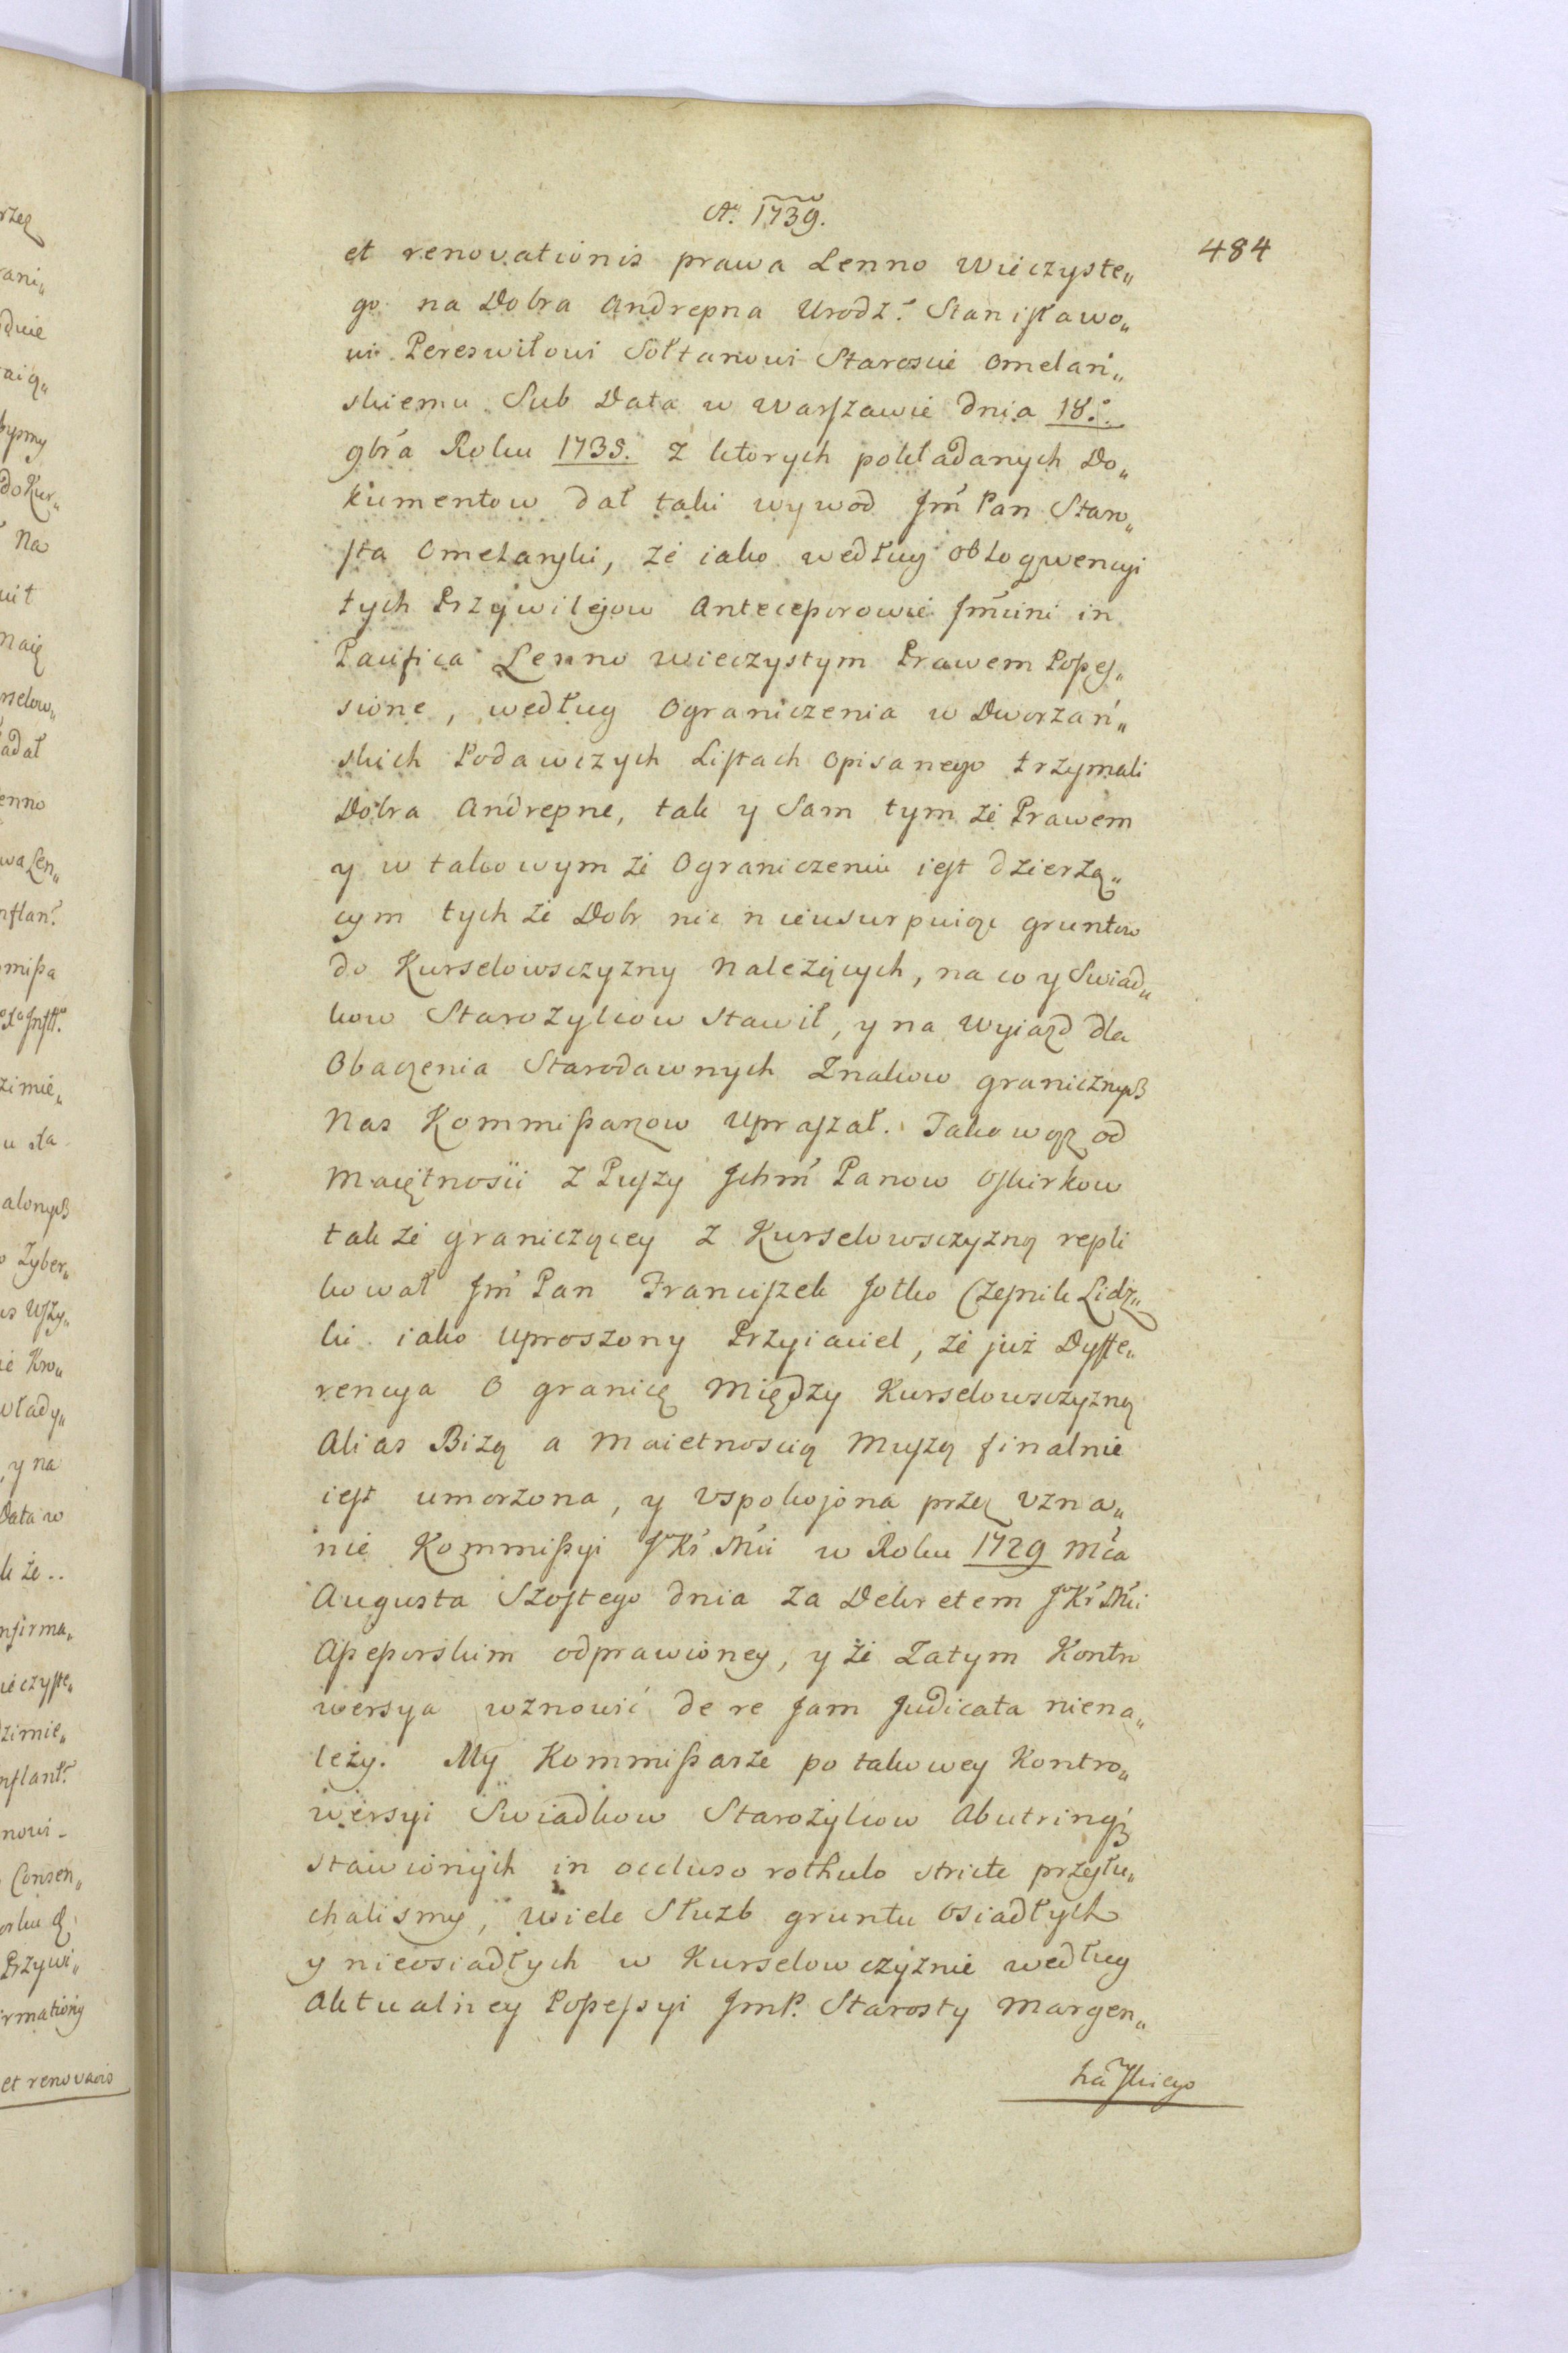 Aº. 1739.
484
et renovationis prawa Lenno Wieczyste„
go na Dobra Andrepna Urodz: Stanisławo„
wi Pereswitowi Sołtanowi Staroscie Omelań„
skiemu Sub Data w Warszawie dnia 18:
9bra Roku 1738. z ktorych pokładanych Do„
kumentow dał taki wywod Jm Pan Staro„
sta Omelanski, że iako według obloqwencyi
tych Przywilejow Antecessorowie Jmcini in
Pacifica Lenno wieczystym Prawem Posses„
sione, według Ograniczenia w Dworzań„
skich Podawczych Listach opisanego trzymali
Dobra Andrepne, tak y Sam tym że Prawem
y w takowym że Ograniczeniu iest dzierżą„
cym tych że Dobr nic nieusurpuiąc gruntow
do Kurselowsczyzny należących, na co y Swiad„
kow Starożylcow stawił, y na Wyiazd dla
Obaczenia Starodawnych Znakow granicznych
Nas Kommissarzow Upraszał. Takowoż od
Maiętnosci z Puszy Ichm Panow Oskirkow
tak że graniczącey z Kurselowsczyzną repli
kował Jm Pan Franciszek Jotko Czesnik Lidz„
ki iako Uproszony Przyiaciel, że już Dyffe„
rencya O granicę Między Kurselowsczyzną
Alias Bizą a Maietnoscią Muszą finalnie
iest umorzona, y Uspokojona przez Uzna„
nie Kommissyi JKr Mci w Roku 1729 Mca
Augusta Szostego dnia za Dekretem JKr Mci
Assessorskim odprawioney, y że Zatym Kontro
wersya wznowić de re Jam Judicata niena„
leży. My Kommissarze po takowey Kontro„
wersyi Swiadkow Starożylcow Abutrinq
stawionych in occluso rothulo stricte przesłu„
chalismy, wiele Służb gruntu osiadłych
y nieosiadłych w Kurselowczyznie według
Aktualney Possessyi JmP. Starosty Margen„
ha skiego